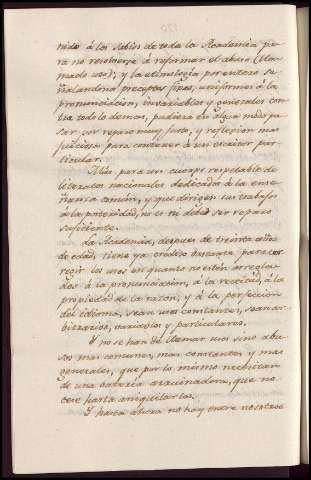 nido á los sabios de toda la Academia pa-
ra no resolverse á reformar el abuso (lla-
mado uso); y la etimología por entero se-
ñalandria preceptos fixos, uniformes á la
pronunciacion, invariables y generales con-
tra todo lo demas, pudiera en algun modo pa-
sar por reparo muy justo, y reflexion mas
juiciosa para contener á un escritor par-
ticular.
Mas para un cuerpo respetable de
literatos nacionales dedicados á la ense-
ñanza comun, y que dirigen sus trabajos
á la posteridad, no es ni debió ser reparo
suficiente.
La Academia, despues de treinta años
de edad, tiene ya credito bastante para cor-
regir los usos en quanto no estén arregla-
dos á la pronunciacion, á la rectitud, á la
propiedad de la razon, y á la perfeccion
del idioma, sean usos constantes, sean ar-
bitrarios, variables y particulares.
Y no se han de llamar usos sino abu-
sos mas comunes, mas constantes y mas
generales, que por lo mismo necesitan
de una batería arruinadora, que no
cese hasta aniquilarlos.
Y hasta ahora no hay entre nosotros